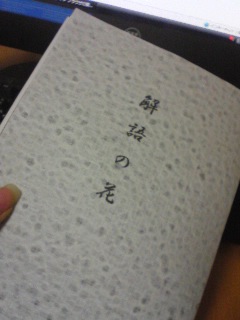 解語の花